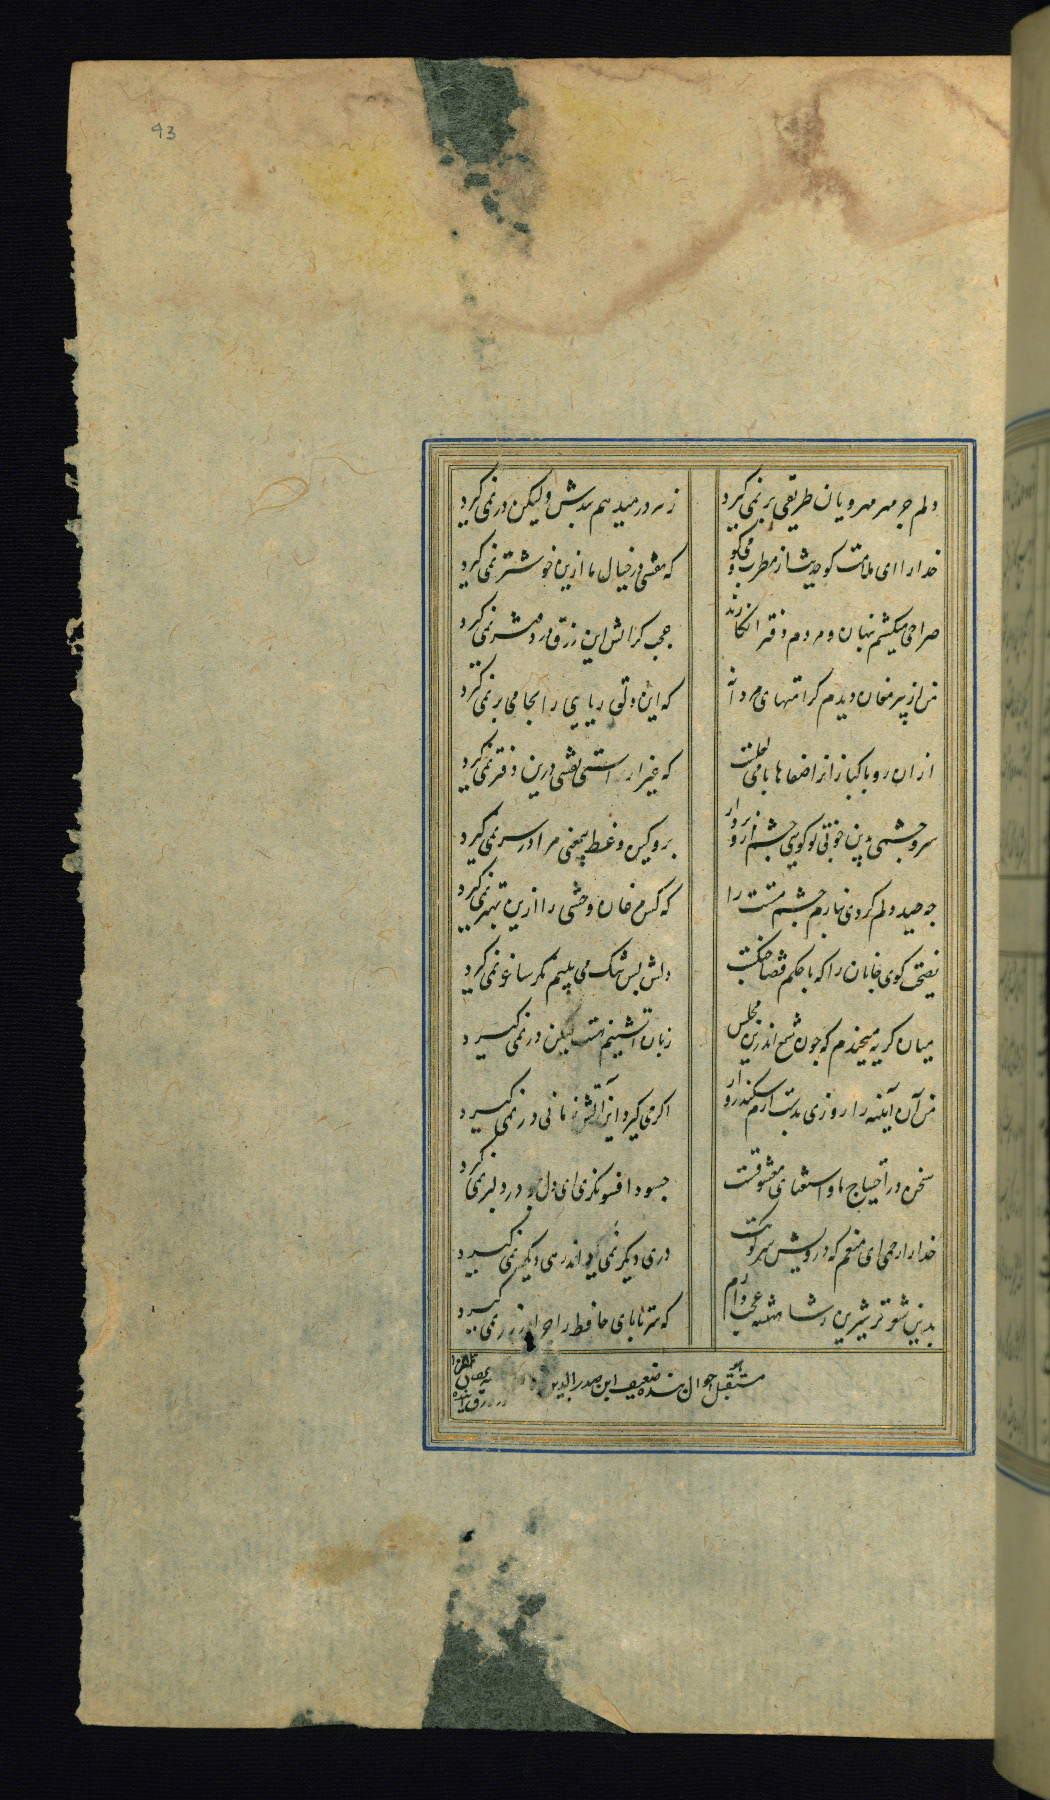 43
دلم جز مهر مهرویان طریقی بر نمی کیرد
ز هر در میدهم پندش ولیکن در نمی کیرد
خدارا ای ملامت کو حدیث از مطرب و می کو
که نقشی در خیال ما ازین خوشتر نمی کیرد
صراحی میکشم نهان و مردم دفتر انکارند
عجب کر اتش این زرق در دفتر نمی کیرد
من از پیر مغان دیدم کرامتهای مردانه
که این دلق ریایی را بجامی بر نمی کیرد
از ان رو پاکبازانرا صفاها با می لعلست
که غیر از راستی نقشی درین دفتر نمی کیرد
سر و چشمی بدین خوبی تو کویی چشم ازو بردار
برو کین وعظ بیمعنی مرا در سر نمی کیرد
چه صید دلم کردی بنازم چشم مستت را
که کس مرغان وحشی را ازین بهتر نمی کیرد
نصیحت کوی خامان را که با حکم قضا جنکست
دلش بس تنک می بینم مکر ساغر نمی کیرد
میان کریه میخندم که چون شمع اندرین مجلس
زبان اتشینم هست لیکن در نمی کیرد
من آن آیینه را روزی بدست آرم سکندروار
اکر می کیرد این آتش زمانی در نمی کیرد
سخن در احتیاج ما و استغنای معشوقست
چه سود افسونکری ای دل چو در دلبر نمی کیرد
خدارا رحمی ای منعم که درویش سر کویت
دری دیکر نمی داند رهی دیکر نمی کیرد
بدین شعر تر شیرین ز شاهنشه عجب دارم
که سر تا پای حافظ را چرا در زر نمی کیرد
مستقبل احوال بنده ضعیف ابن صدر الدین